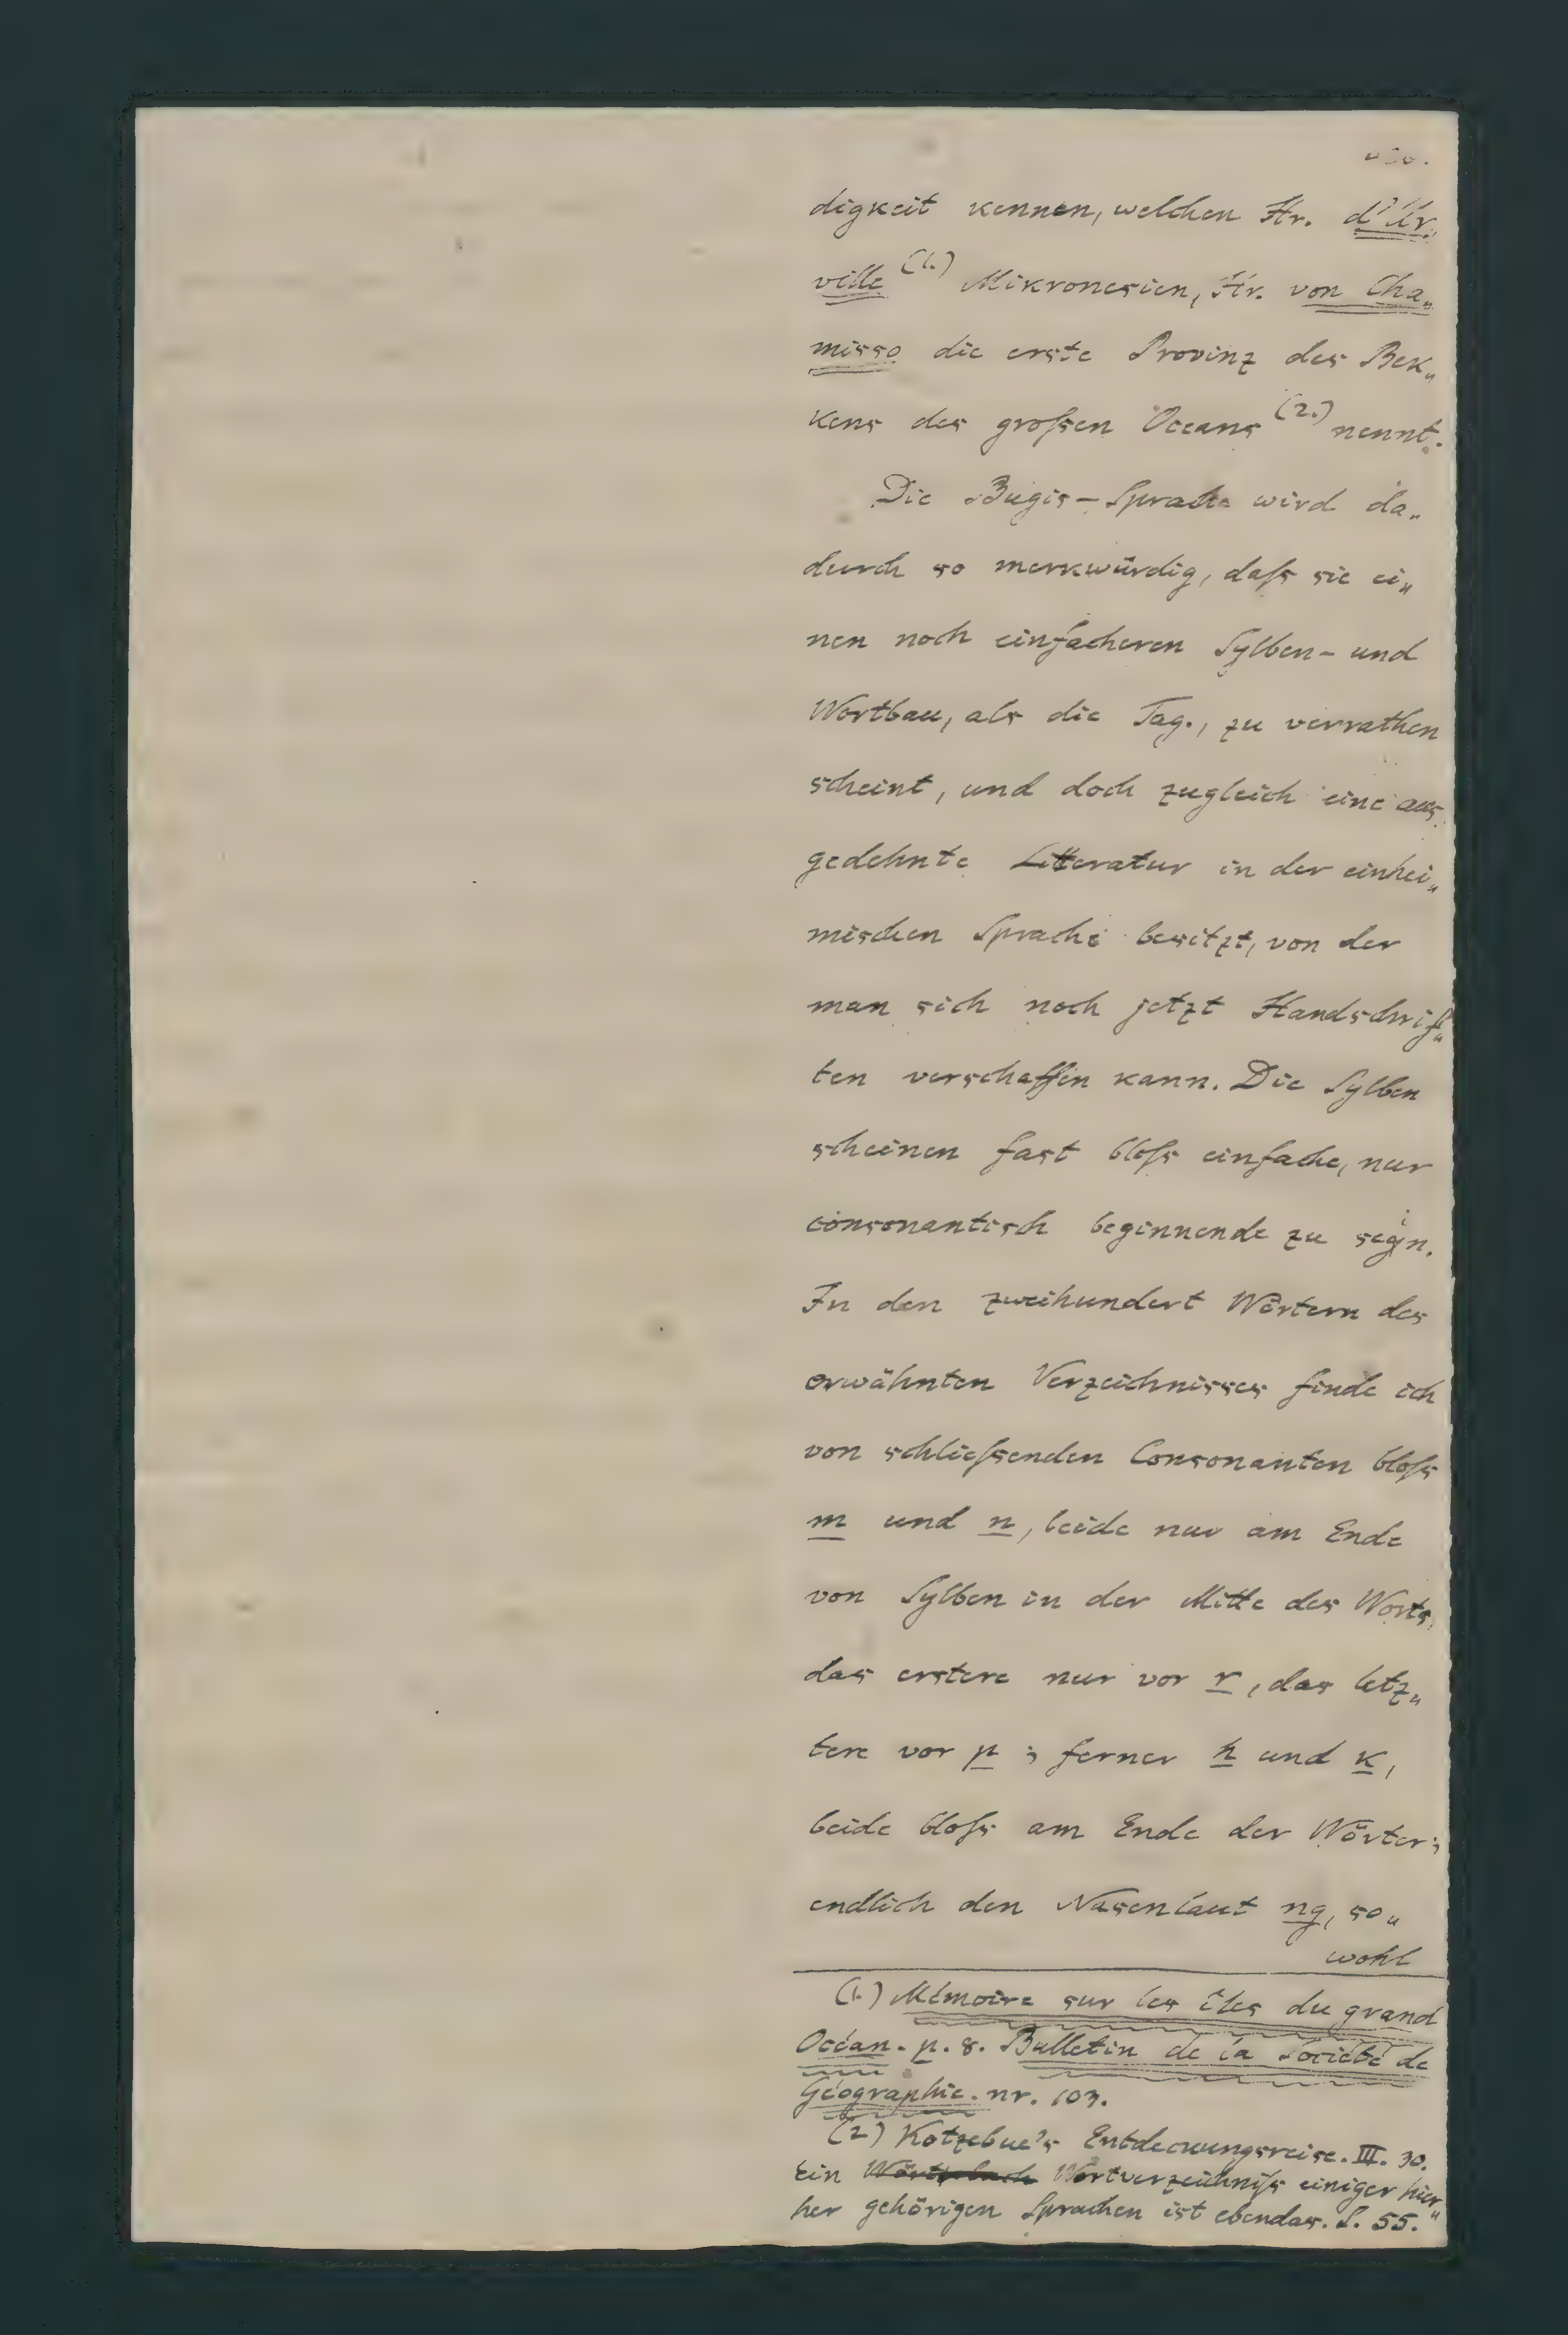 digkeit kennen, welchen Hr. d'Ur„
ville (1.) Mikronesien, Hr. von Cha„
misso die erste Provinz des Bek„
kens des großen Oceans (2.) nennt.
Die Bugis-Sprache wird da„
durch so merkwürdig, daß sie ei„
nen noch einfacheren Sylben- und
Wortbau, als die Tag., zu verrathen
scheint, und doch zugleich eine aus„
gedehnte Litteratur in der einhei„
mischen Sprache besitzt, von der
man sich noch jetzt Handschrif„
ten verschaffen kann. Die Sylben
scheinen fast bloß einfache, nur
consonantisch beginnende zu sein.
In den zweihundert Wörtern des
erwähnten Verzeichnisses finde ich
von schließenden Consonanten bloß
m und n, beide nur am Ende
von Sylben in der Mitte des Worts,
das erstere nur vor r, das letz„
tere vor p; ferner h und k,
beide bloß am Ende der Wörter;
endlich den Nasenlaut ng, so„
wohl
(1.) Mémoire sur les îles du grand
Océan. p. 8. Bulletin de la Société de
Géographie. nr. 103.
(2) Kotzebue's Entdeckungsreise. III. 30.
Ein Wörterbuch Wortverzeichniß einiger hier„
her gehörigen Sprachen ist ebendas. S. 55.